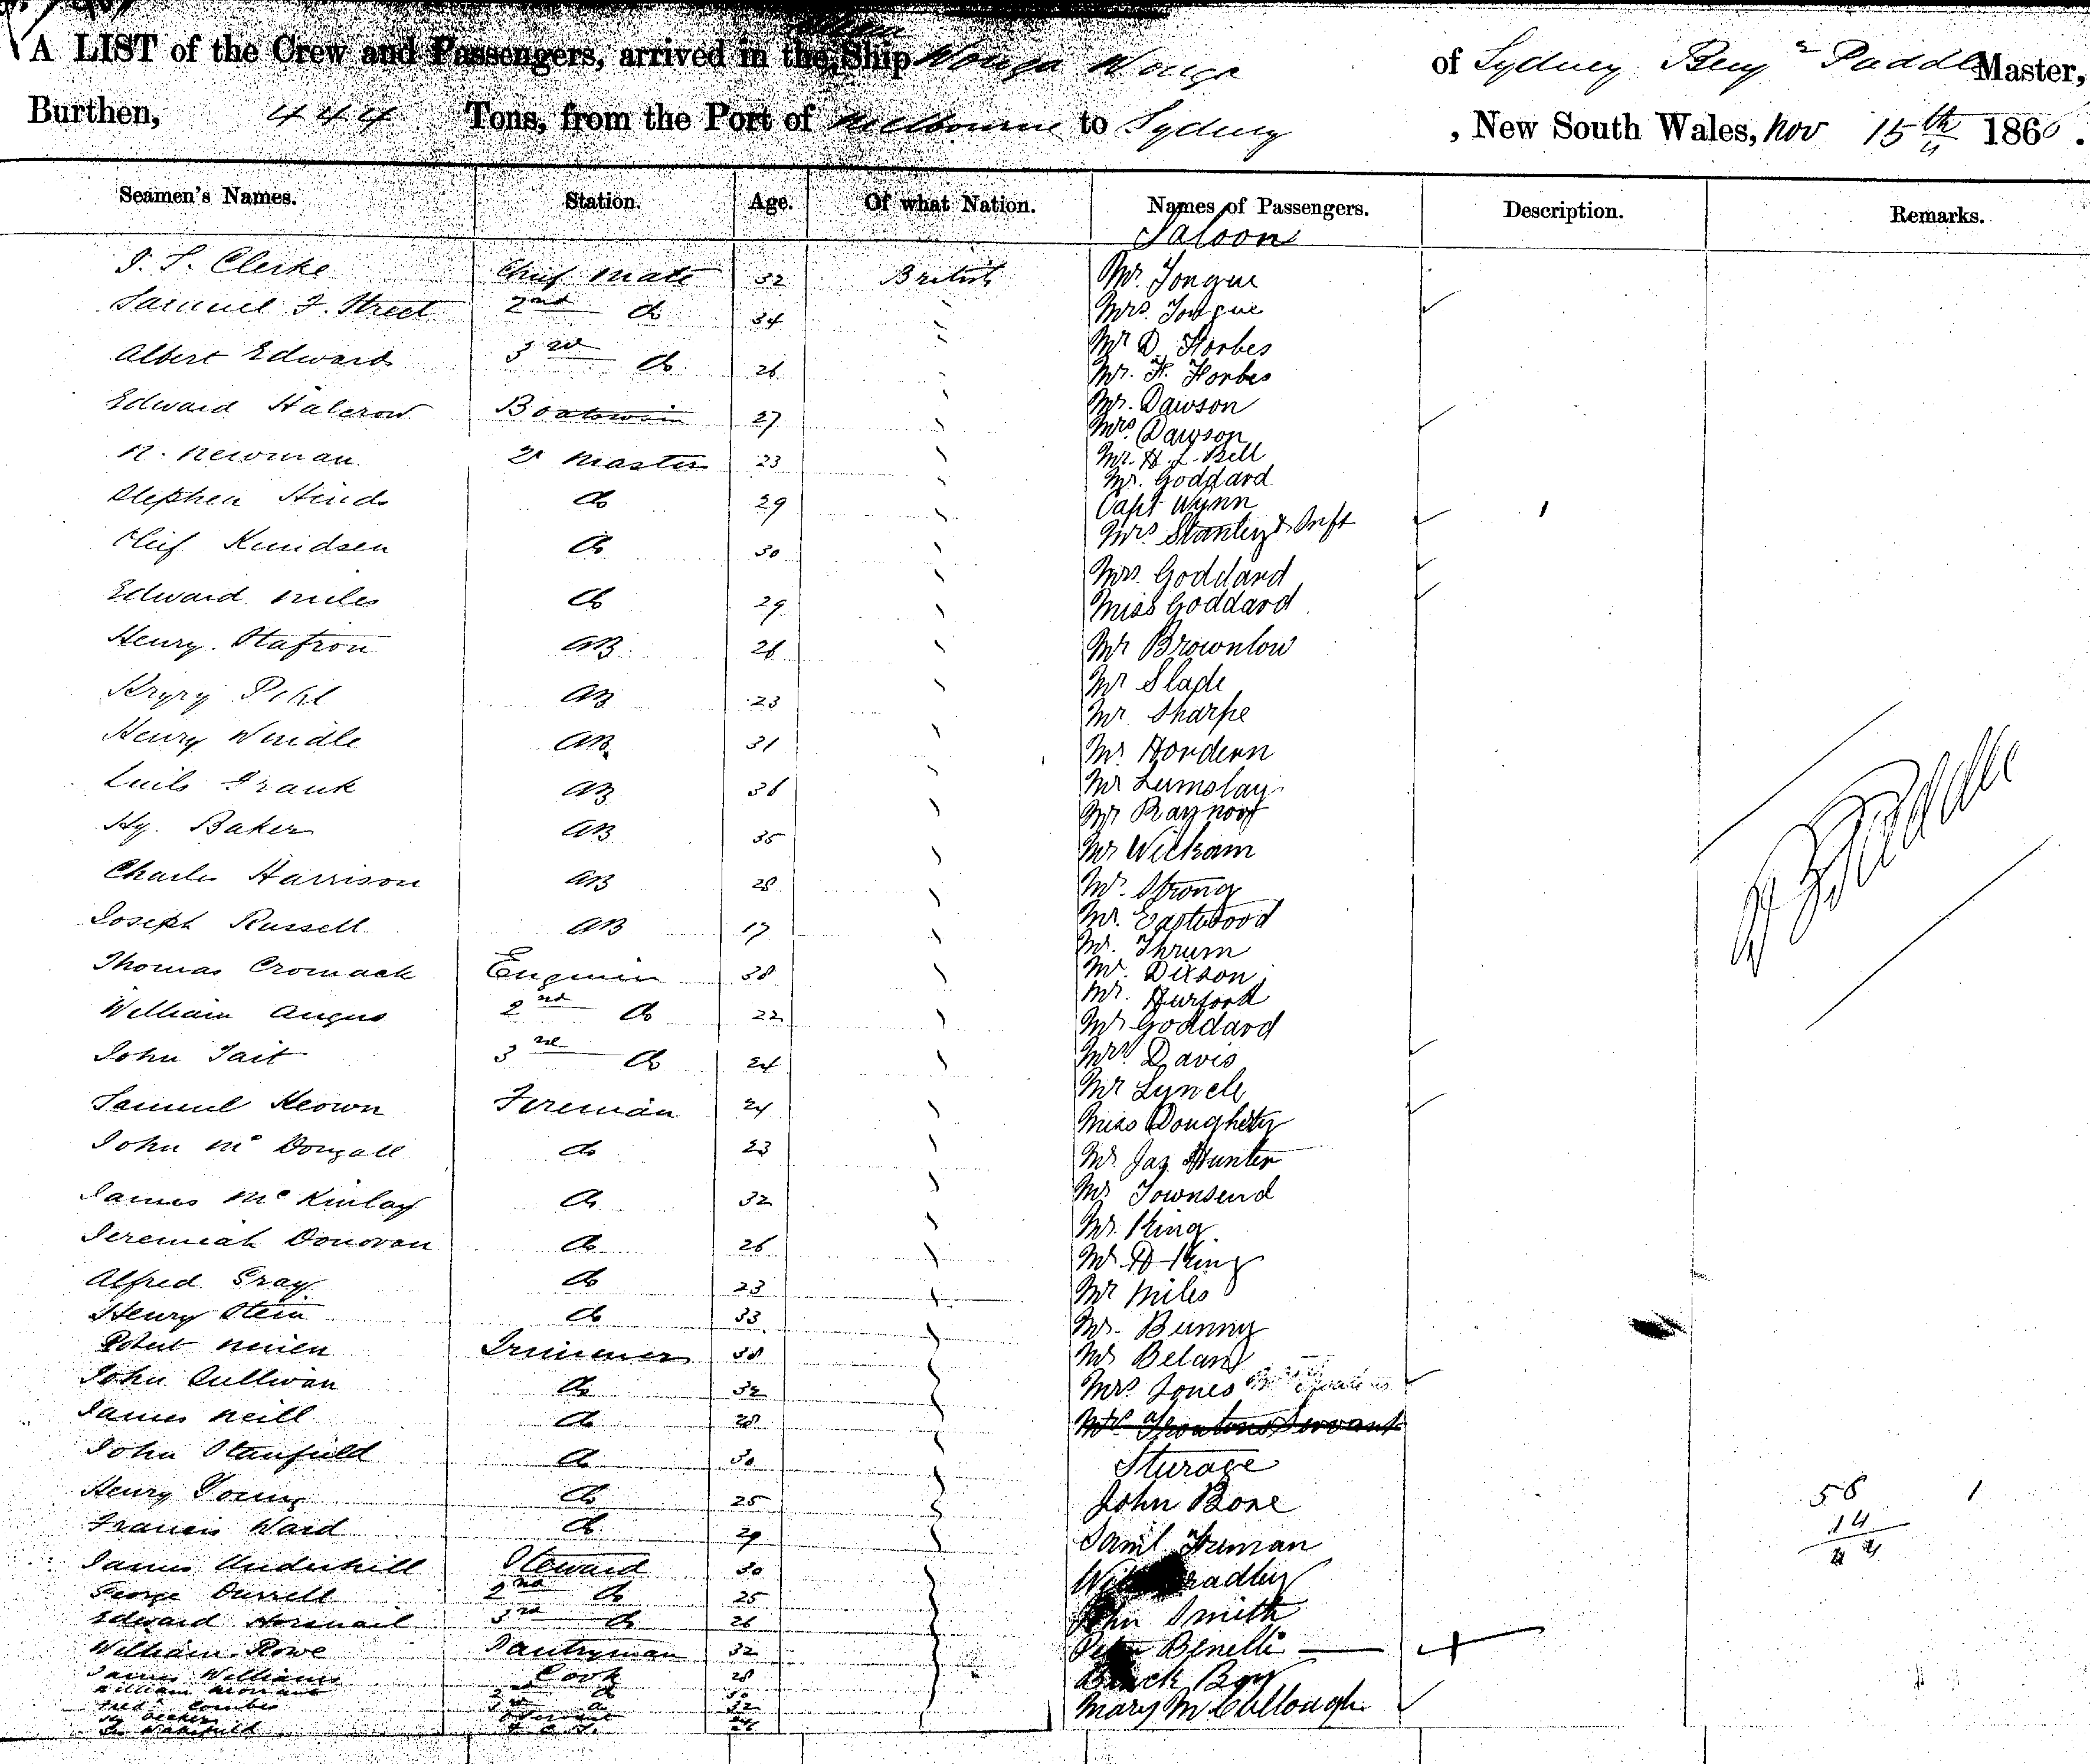 A LIST of the Crew and Passengers, arrived in the Ship Wonga Wonga of Sydney Benj Paddle Master,
Burthen, 444 Tons, from the Port of Melbourne to Sydney, New South Wales, Nov 15th 186 .
Seamen's Names. Station. Age. Of what Nation. Names of Passengers. Description. Remarks.
Saloon
J. S. Clerke Chief Mate 32 British Mr. Tongue
Samuel F. Street 2nd do 34 Mrs. Tongue
Mr D. Forbes
Albert Edwards 3rd do 26 Mr. F. Forbes
Edward Halcrow Boatswain 27 Mr. Dawson
Mrs Dawson
N. Newman Qr Master 23 Mr. H. L. Bell
Mr. Goddard
Stephen Hinds do 29 Capt Wynn
Mrs Stanley & Inft
Oleif Knudsen do 30 Mrs. Goddard
Edward Miles do 29 Miss Goddard
Henry Stafron AB 26 Mr Brownlow
Pihl AB 23 Mr Slade
Mr Sharpe
Henry Windle AB 31 Mr Hordern
Frank AB 36 Mr Lumsday
Mr Raynor
Hy. Baker AB 35 Mr Wickham
Charles Harrison AB 28 Mr. Strong
Joseph Russell AB 17 Mr. Eastwood
Mr. Thrum
Thomas Cromack Engineer 38 Mr. Dixson
Mr. Hurford
William Angus 2nd do 22 Mr Goddard
John Tait 3rd do 24 Mrs Davis
Mr Lynch
Samuel Keown Fireman 24 Miss Doughety
John McDougall do 23 Mr Jas Hunter
James McKinlay do 32 Mr Townsend
Mr. King
Jeremiah Donovan do 26 Mr H King
Alfred Gray do 23 Mr Miles
Henry Stein do 33 Mr. Bunny
Robert Trimmer 38 Mr Belam
John Sullivan do 32 Mrs Jones
James Neill do 28 Servant
John Stanfield do 30 Sturage
Henry Young do 25 John Bone
Francis Ward do 29 Saml Truman
James Underhill Steward 30 Bradley
George Durrell 2nd do 25 John Smith
Edward 3rd do 26
William Rowe Pantryman 32 Peter Benelli
James Williams Cook 28 Black Boy
Mary McCullough
B Paddle
58
14
1